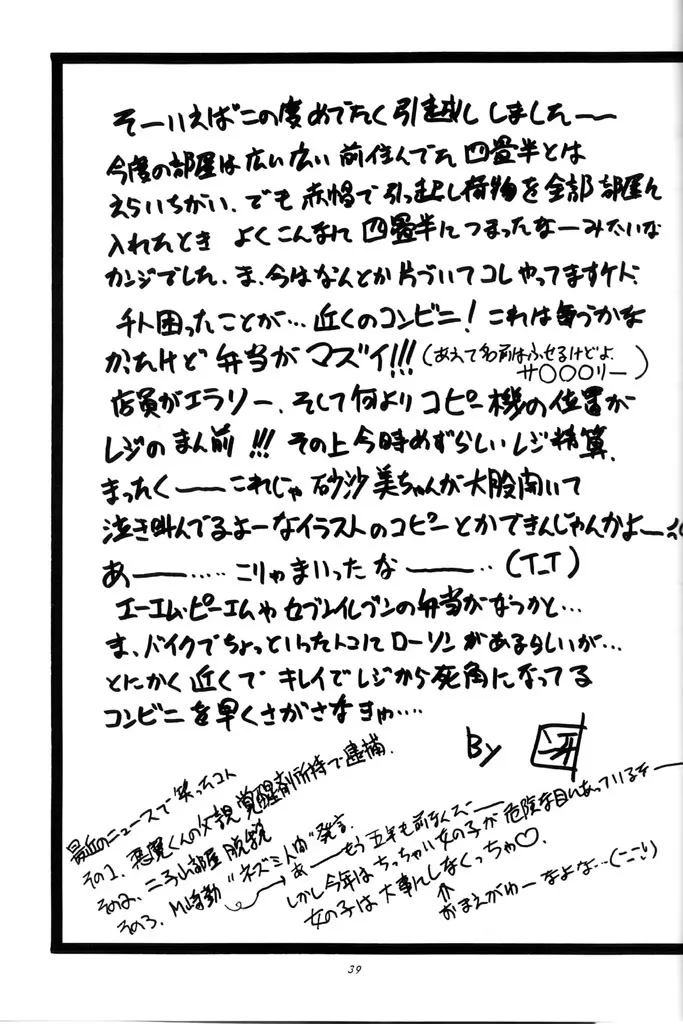 そーいえばこの度めでたく引越ししました――
今度の部屋は広い広い前住んでた四畳半とは
えらいちがい、でも赤帽で引っ起し荷物を全部部屋ん
入れたとき よくこんなに四畳半につまったなーみたいな
カンジでした、ま、今はなんとか片づいてコレやってますケド、
チト困ったことが…近くのコンビニ!これは毎うかな
かったけど弁当がマズイ!!!(あえて名前はふせるけどよ、
サ〇〇〇リー)
店員がエラソー、そして何よりコピー機の位置が
レジのまん前!!!その上今時めずらしいレジ精算、
あ――……こりゃまいったな――‥(T_T)
エーエム・ピーエムやセブンイレブンの弁当がなつかし…
ま、バイクでちょっといったトコにローソンがあるらしいが…
とにかく近くでキレイでレジから死角になってる
コンビニを早くさがさなきゃ….
By
最近のニュースで笑ったコト
その1、悪魔くんの父親覚醒剤所持で逮捕、
その2、二子山部屋脱税
その3、M崎勤"ネズミ人間"発言、
あ――もう五年も前なんだ――
しかし今年はちっちゃい女の子が危険な目にあっているぞ――
女の子は大事にしなくっちゃ♡
おまえがゆーなよな…(ニコ)
39